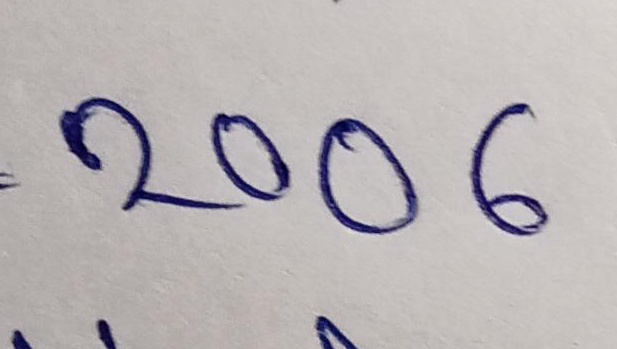 = 2006